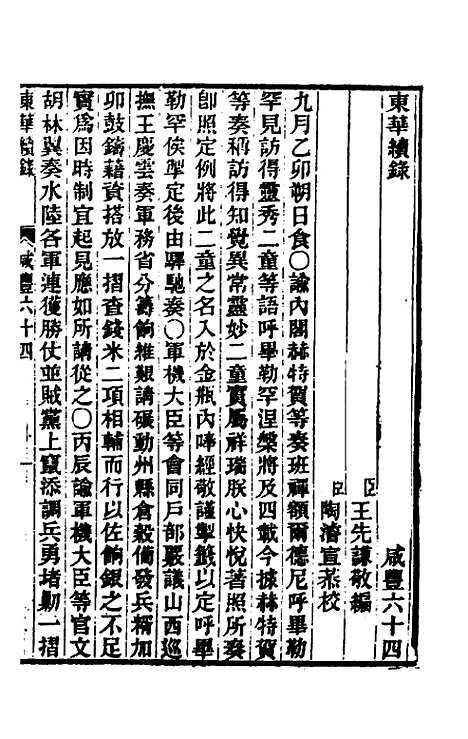 東華續錄 咸豐六十四
臣王先謙敬編
臣陶濬宣恭校
九月乙卯朔日食〇諭內閣赫特賀等奏班禪額爾德尼呼畢勒
罕見訪得靈秀二童等語呼畢勒罕涅槃將及四載今據赫特賀
等奏稱訪得知覺異常靈妙二童實屬祥瑞朕心快悅著照所奏
卽照定例將此二童之名入於金瓶內唪經敬謹掣籤以定呼畢
勒罕俟掣定後由驛馳奏〇軍機大臣等會同戶部嚴議山西巡
撫王慶雲奏軍務省分籌餉維艱請碾動州縣倉穀備發兵糈加
卯鼓鑄藉資搭放一摺查錢米二項相輔而行以佐餉銀之不足
實爲因時制宜起見應如所請從之〇丙辰諭軍機大臣等官文
胡林翼奏水陸各軍連獲勝仗並賊黨上竄添調兵勇堵勦一摺
東華續錄 咸豐六十四